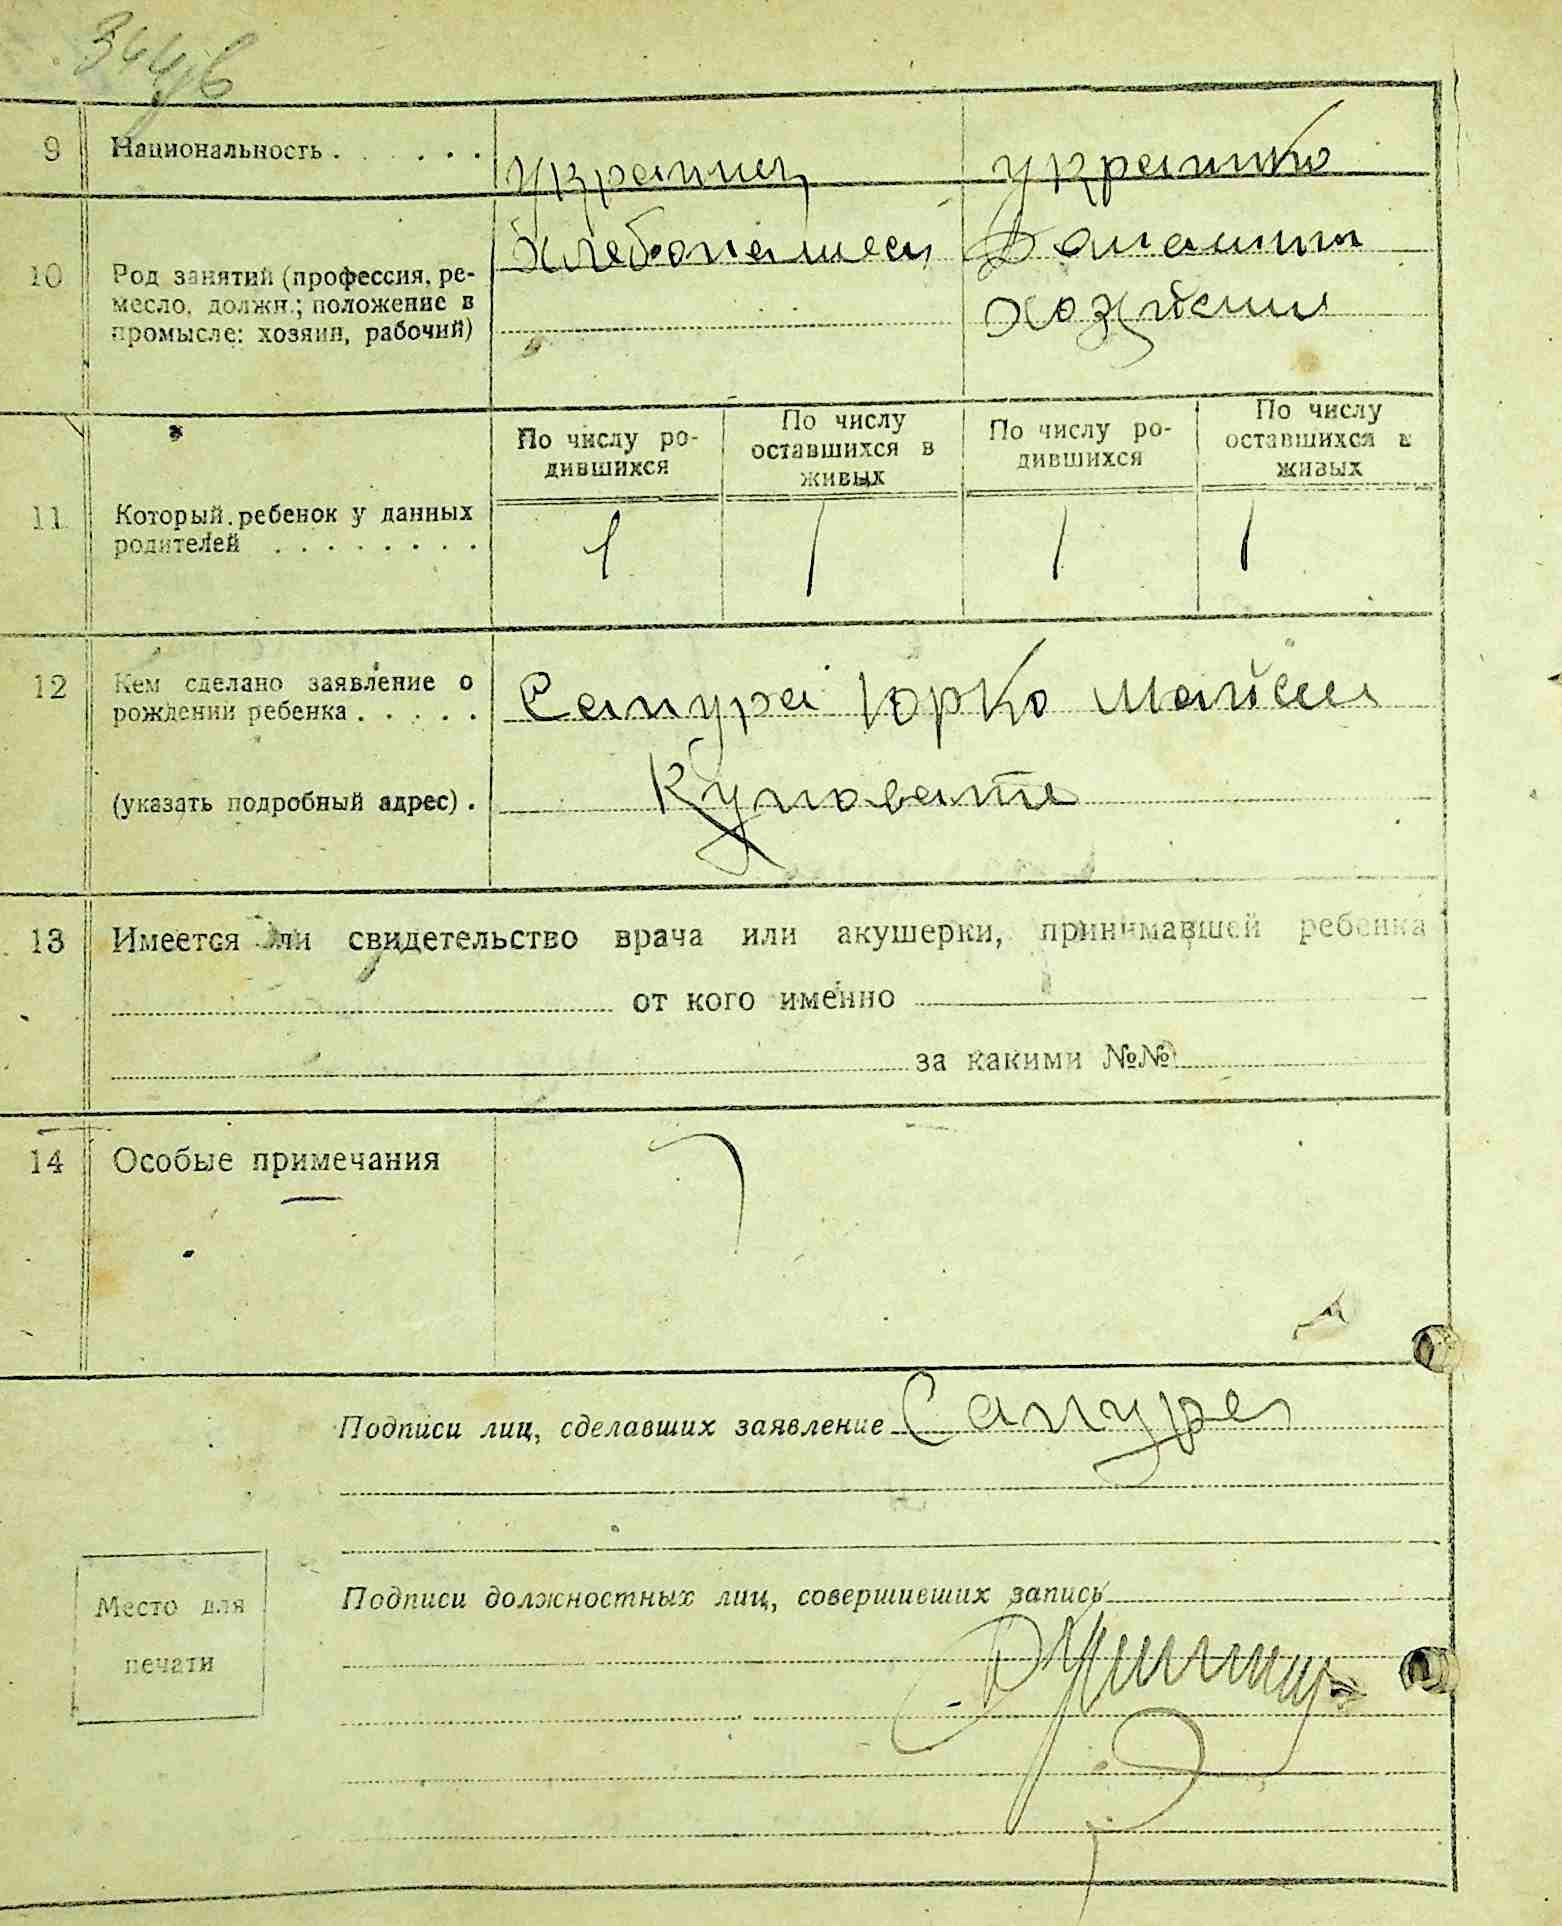 344/в
9 Национальность . . . . . . украинец украинко
10 Род занятий (профессия, ре-
месло, должн.; положение в
промысле: хозяин, рабочий)
хлебопашец Домашни
хозяйки
По числу ро-
дившихся
По числу
оставшихся в
живых
По числу ро-
дившихся
По числу
оставшихся в
живых
11 Который ребенок у данных
родителей . . . . . . . . 1 1 1 1
12 Кем сделано заявление о
рождении ребенка . . . . . Сапура Юрко
(указать подробный адрес) . Куповате
13 Имеется ли свидетельство врача или акушерки, принимавшей ребенка
от кого именно
за какими №№
14 Особые примечания
Подписи лиц, сделавших заявление Сапура
Место для
печати
Подписи должностных лиц, совершивших запись